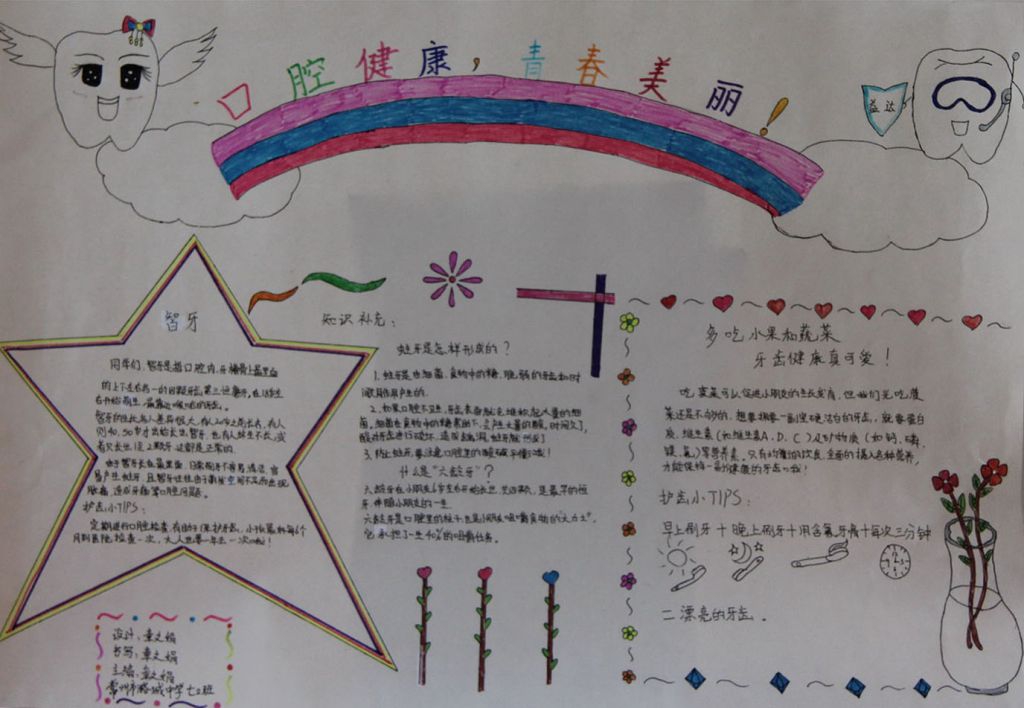 口腔健康，青春美丽！
益达
智牙
同学们，智牙是指口腔内，牙槽骨上最里面
的上下左右各一的四颗牙齿，第三磨牙，
智牙的生长与人差异很大，有人20岁之前长出，有人
则40、50岁才出始长出智牙，也有人终生不长，或
者只长出1至2颗牙，这都是正常的。
由于智牙长在最里面，日常刷牙不易清洁，容
易产生蛀牙，且智牙往往由于萌发空间不足而出现
肿痛，造成牙痛等口腔问题。
护齿小TIPS：
定期进行口腔检查，有助于保护牙齿，小孩最好每6个
月到医院检查一次，大人也要一年去一次哦！
设计：章文娟
书写：章文娟
主编：章文娟
常州市潞城中学七2班
知识补充：
蛀牙是怎样形成的？
1. 蛀牙是由细菌，食物中的糖、脆弱的牙齿和时
间相互作用产生的。
2. 如果口腔不卫生，牙齿表面就会堆积起大量的细
菌。细菌在食物中的糖素留下，会产生大量的酸，时间久了，
3. 防止蛀牙要注意口腔里的酸碱平衡哦！
什么是“六龄牙”？
六龄牙在小朋友6岁左右开始长出，共四颗，是最早的恒
牙，伴随小朋友的一生。
六龄牙是口腔里的柱子，也是小朋友咀嚼食物的“大力士”，
它承担了一生40%的咀嚼任务。
多吃水果和蔬菜
牙齿健康真可爱！
吃菠菜可以促进小朋友的生长发育，但我们光吃菠
菜还是不够的，想要拥有一副坚硬洁白的牙齿，就要蛋白
质、维生素（如维生素A、D、C）及矿物质（如钙、磷、
镁、氟）等营养素。只有均衡的饮食，全面的摄入各种营养，
才能保持一副健康的牙齿哦！
护齿小TIPS：
早上刷牙＋晚上刷牙＋用含氟牙膏＋每次三分钟
二漂亮的牙齿。